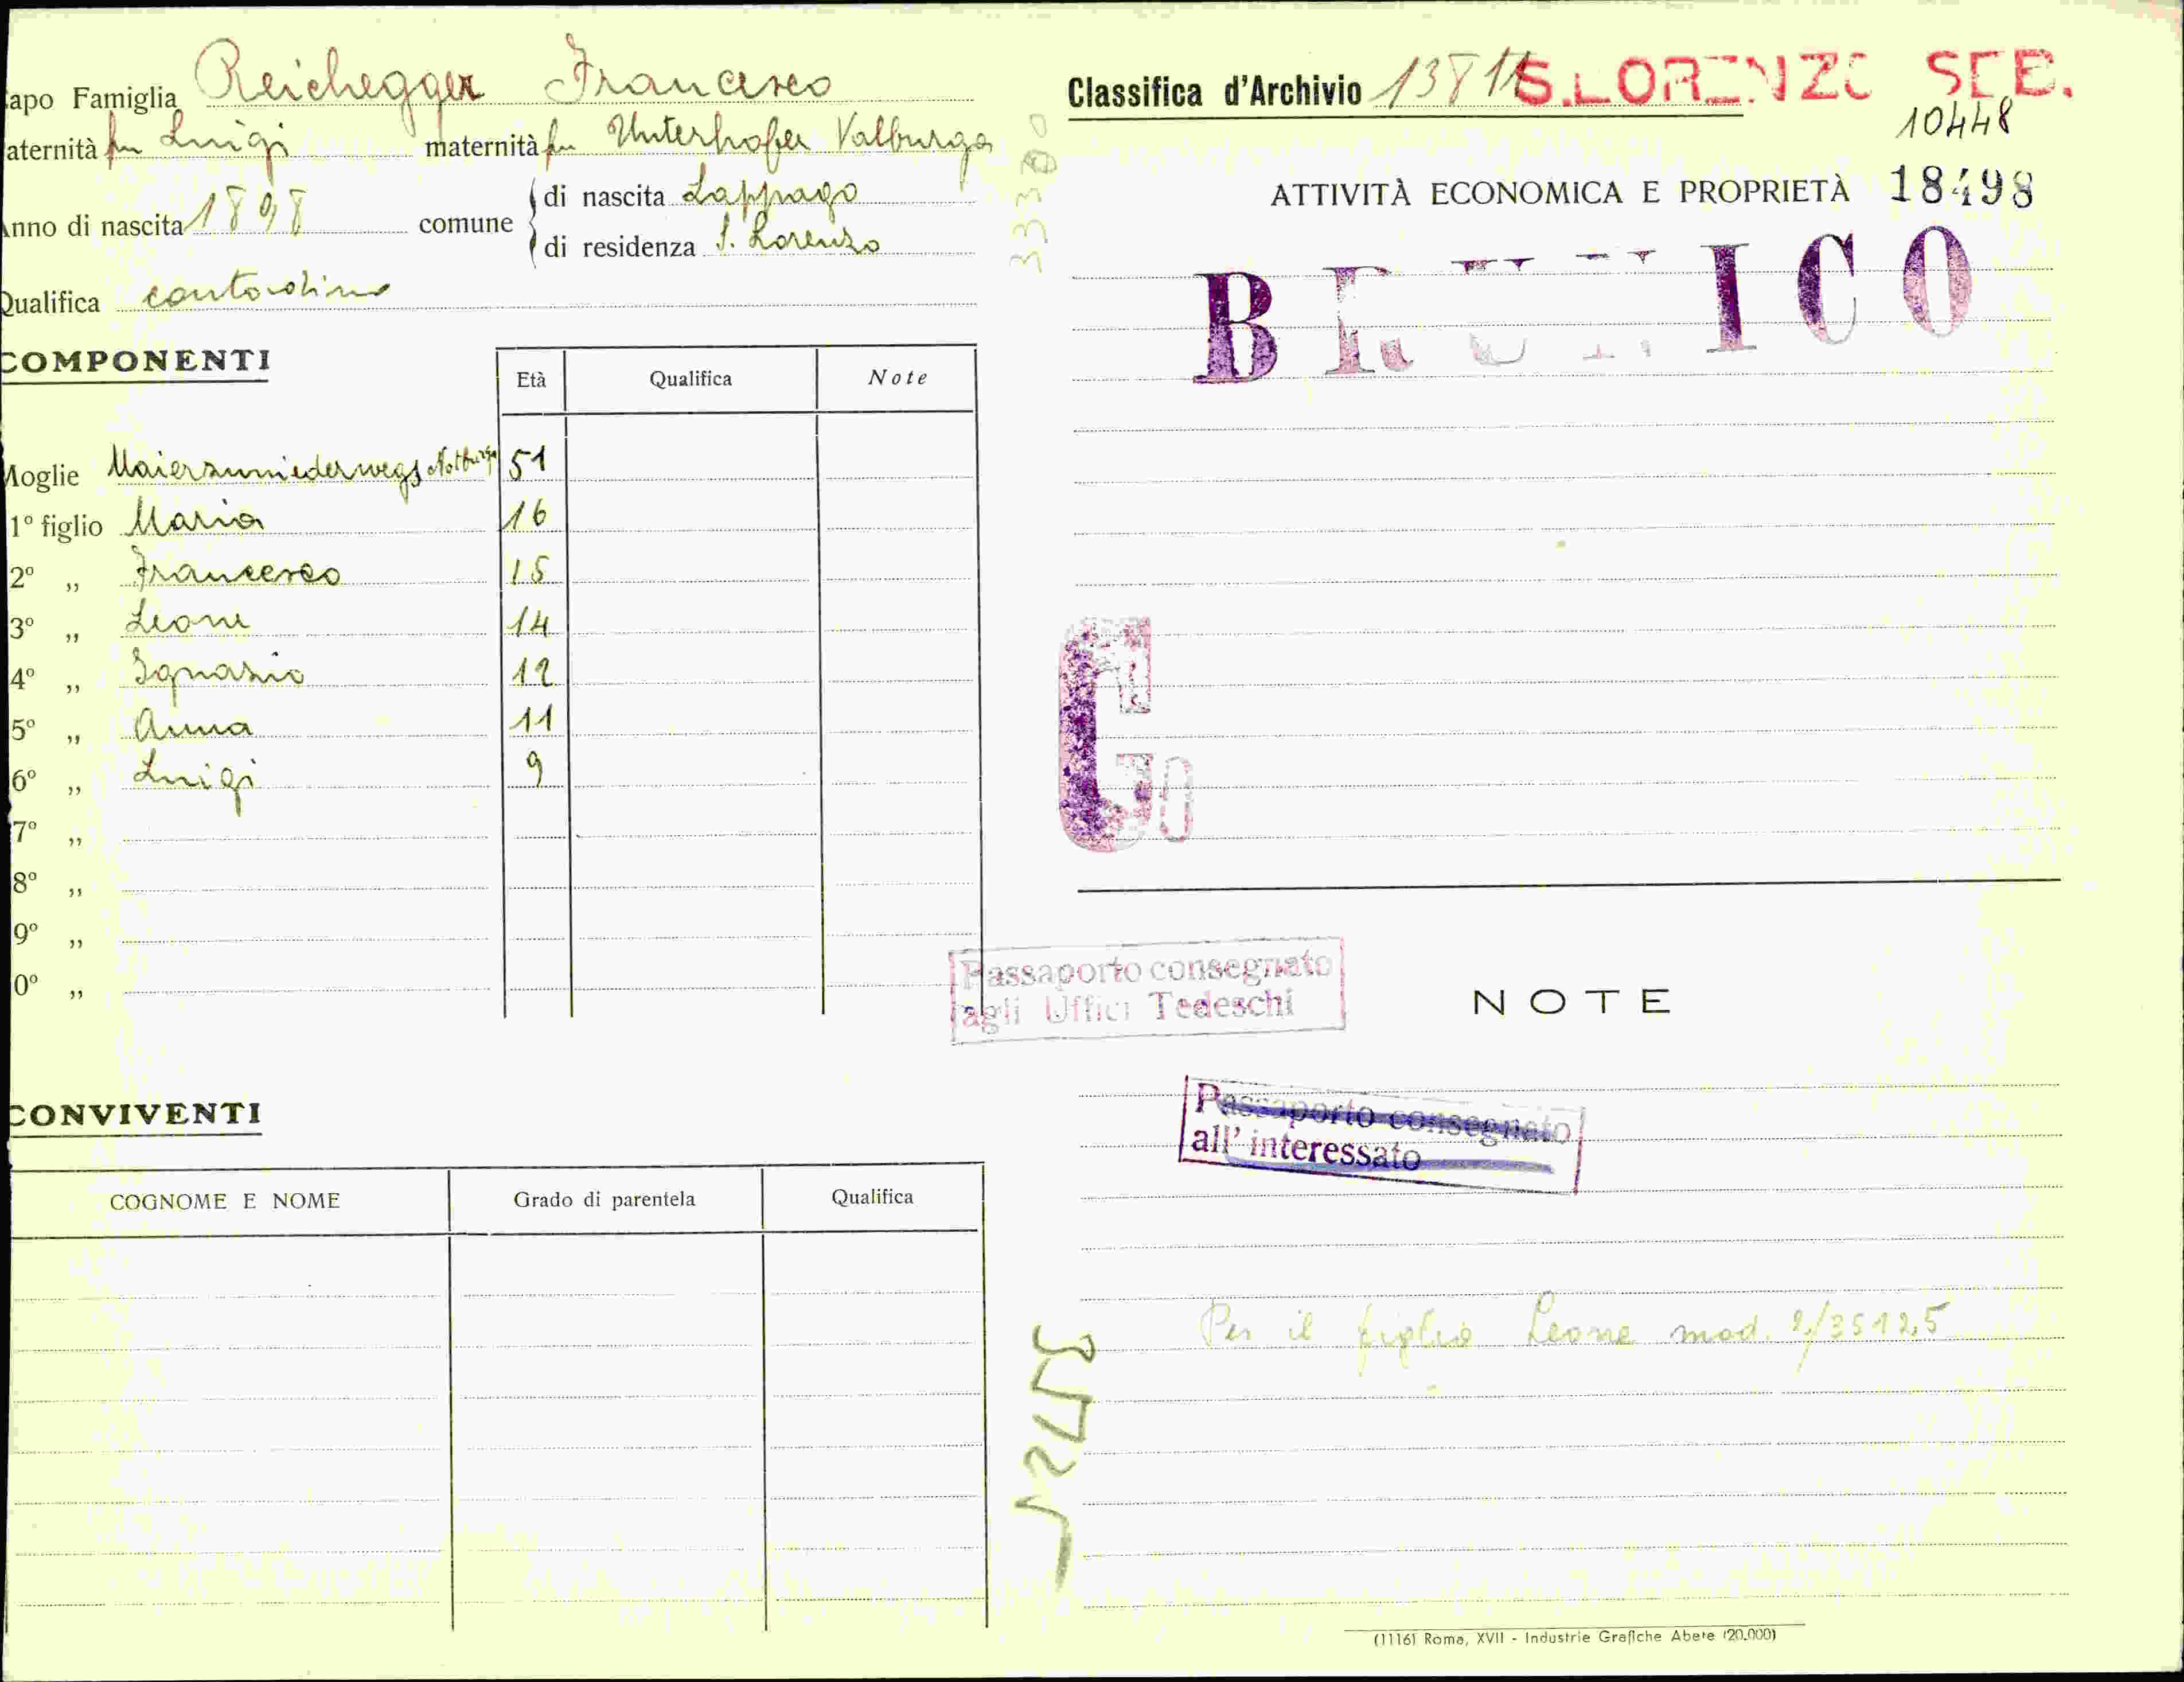 apo Famiglia Reichegger Francesco
aternità fu Luigi maternità fu Unterhofer Valburga
Anno di nascita 1898 comune di nascita Lappago
di residenza S. Lorenzo
Qualifica contadino
COMPONENTI
Età Qualifica Note
Moglie Maierzumniederwegs Notburga 51
1° figlio Maria 16
2° „ Francesco 15
3° „ Leone 14
4° „ Ignazio 12
5° „ Anna 11
6° „ Luigi 9
7° „
8° „
9° „
0° „
CONVIVENTI
COGNOME E NOME Grado di parentela Qualifica
Classifica d'Archivio S.LORENZO SEB.
10448
ATTIVITÀ ECONOMICA E PROPRIETÀ 18498
BRUNICO
33300
G
Passaporto consegnato
agli Uffici Tedeschi
NOTE
Passaporto consegnato
all' interessato
Per il figlio Leone mod. 2/35125
(1116) Roma, XVII - Industrie Grafiche Abete (20.000)